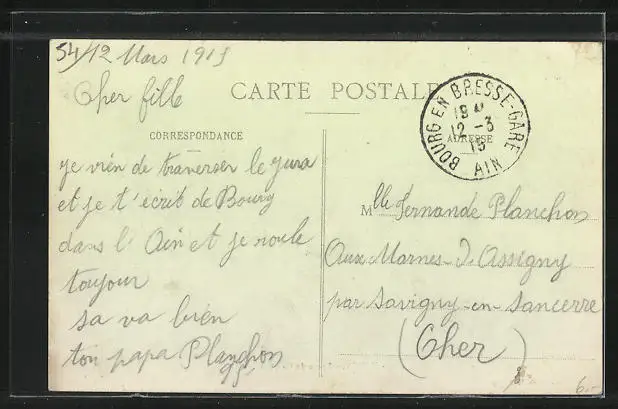 54/12 Mars 1915
Cher fille
CARTE POSTALE
CORRESPONDANCE
ADRESSE
BOURG EN BRESSE-GARE
12 -3
15
AIN
je vien de traverser le jura
et je t'écrit de Bourg
dans l'Ain et je roule
toujour
sa va bien
ton papa Planchon
Mlle Fernande Planchon
Aux Marnes-d'Assigny
par Savigny-en-Sancerre
(Cher)
6.-